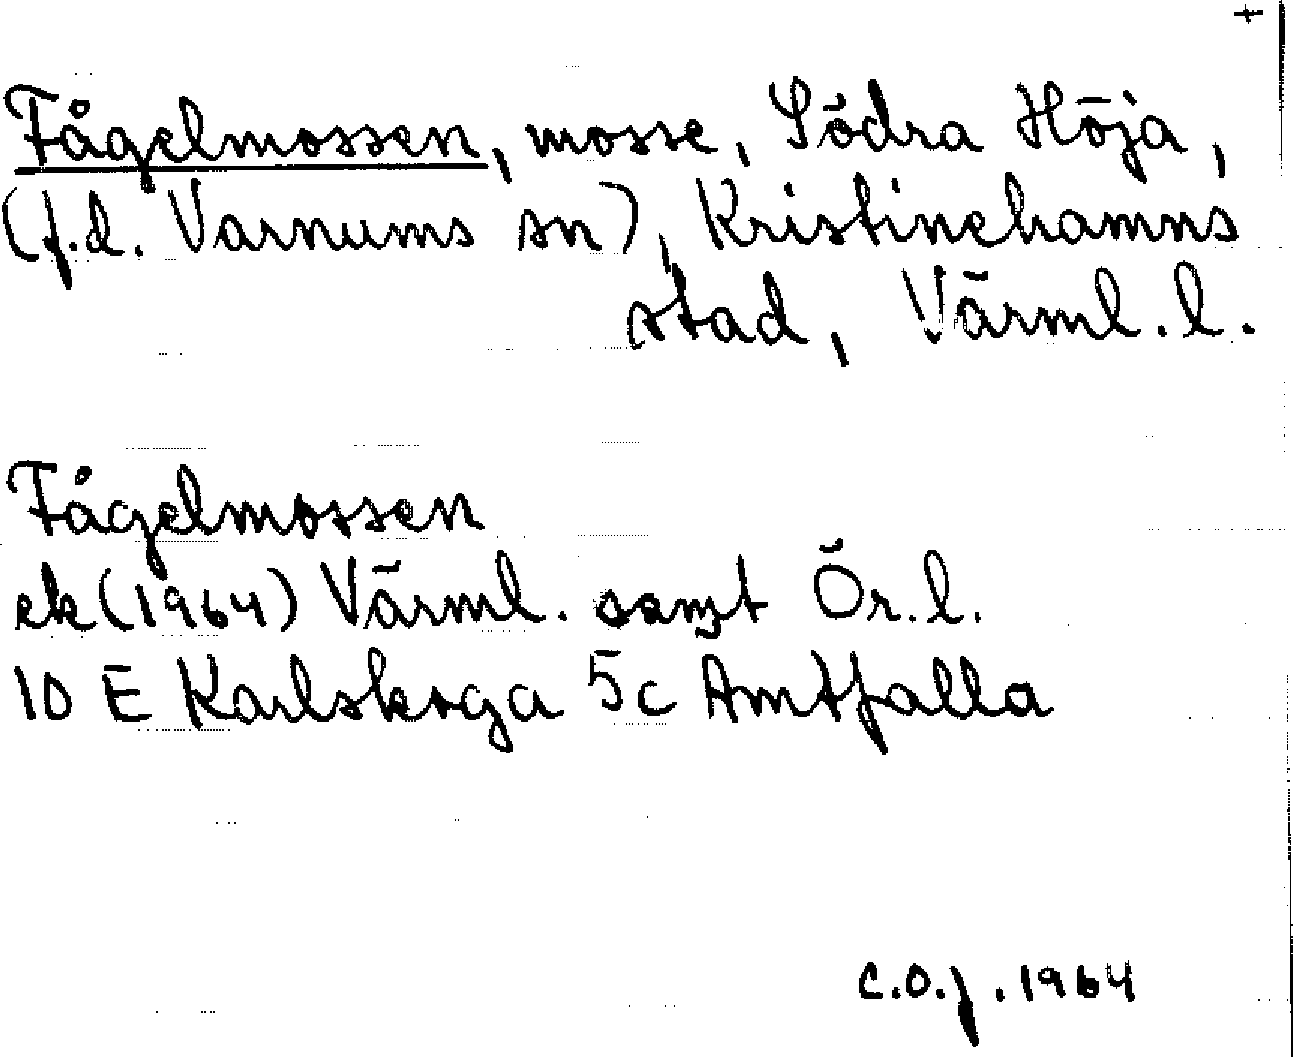 +
Fågelmossen, mosse, Södra Höja,
(f.d. Varnums sn), Kristinehamns
stad, Värml. l.
Fågelmossen
ek (1964) Värml. samt Ör. l.
10 E Karlskoga 5c Amtfalla
C.O.J. 1964